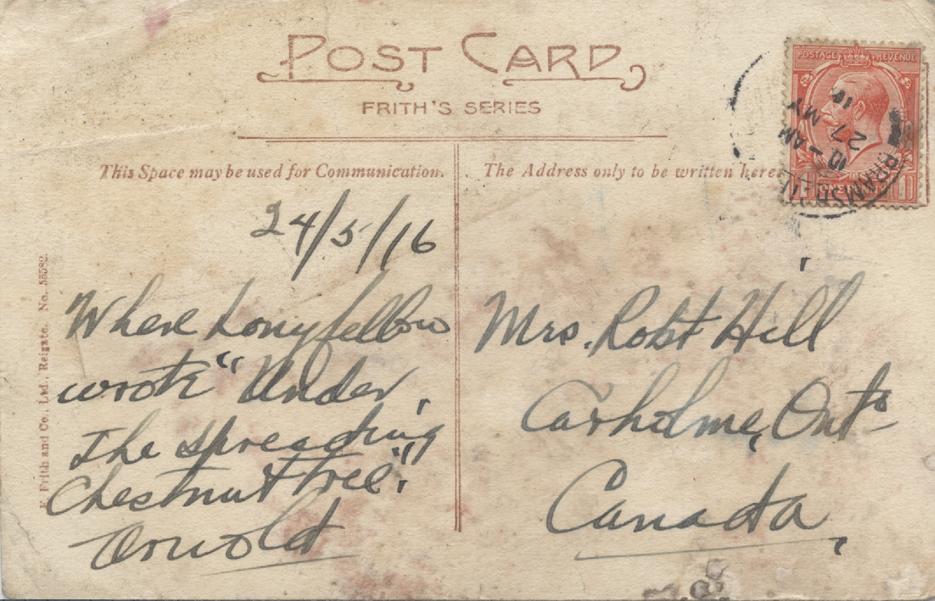 POST CARD
FRITH'S SERIES
This Space may be used for Communication.
The Address only to be written here
POSTAGE REVENUE
10 - AM
27 MY
24/5/16
Where Longfellow
wrote "Under
The spreading
Chestnut tree".
Arnold
Mrs. Robt Hill
Carholme, Ont
Canada
F. Frith and Co., Ltd., Reigate. No.